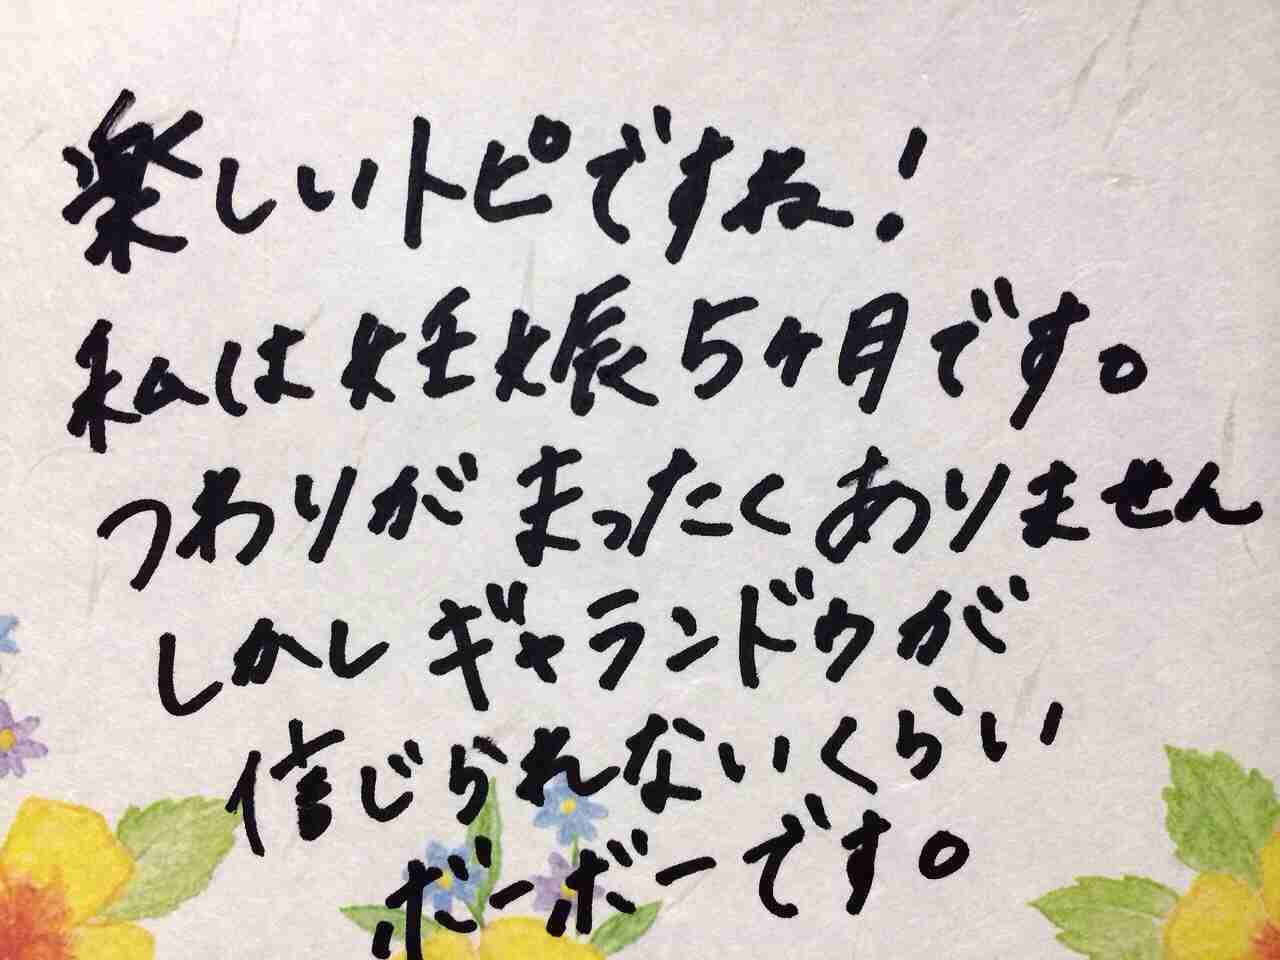 楽しいトピですね!
私は妊娠5ヶ月です。
つわりがまったくありません
しかしギャランドゥが
信じられないくらい
ボーボーです。